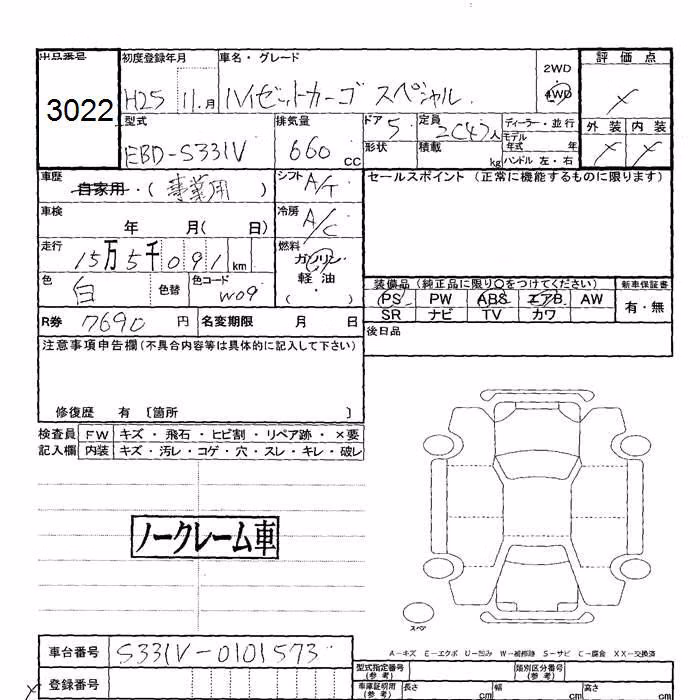 出品番号 初度登録年月 車名・グレード 評価点
3022 H25 11月 ハイゼットカーゴ スペシャル 2WD 4WD
型式 排気量 ドア 5 定員 2(4)人 ディーラー・並行 外装 内装
EBD-S331V 660 cc 形状 積載 kg モデル年式 年 ハンドル 左・右
車歴 自家用・(事業用) シフト A/T セールスポイント (正常に機能するものに限ります)
車検 年 月( 日) 冷房 A/C
走行 15万5千091km 燃料 ガソリン・軽油 ( ・ )
色 白 色替 色コード W09
装備品 (純正品に限り○をつけてください) 新車保証書
PS PW ABS エアB AW 有・無
SR ナビ TV カワ
R券 7690 円 名変期限 月 日 後日品
注意事項申告欄(不具合内容等は具体的に記入して下さい)
修復歴 有 〔箇所 〕
検査員 FW キズ・飛石・ヒビ割・リペア跡・×要
記入欄 内装 キズ・汚レ・コゲ・穴・スレ・キレ・破レ
ノークレーム車
スペア
A-キズ E-エクボ U-凹み W-補修跡 S-サビ C-腐食 XX-交換済
車台番号 S331V-0101573
型式指定番号(参考) 類別区分番号(参考)
登録番号 車庫証明用(参考) 長さ cm 幅 cm 高さ cm